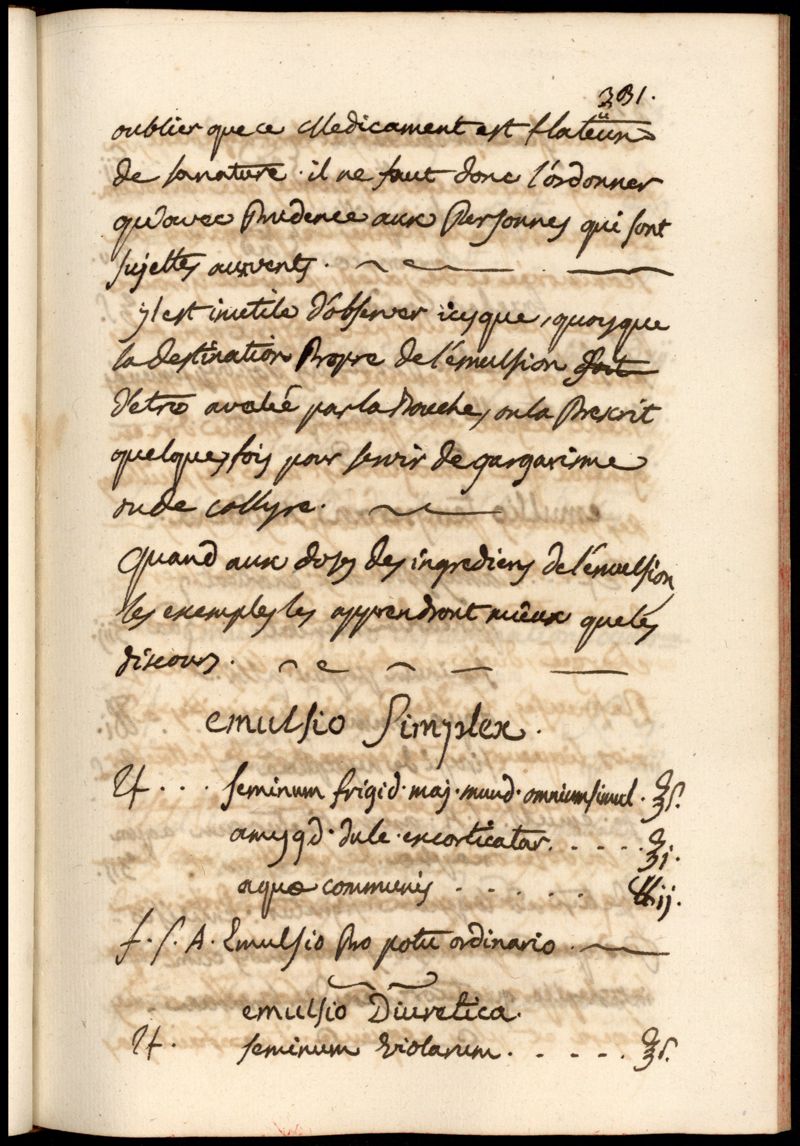 381.
oublier que ce Medicament est flateux
de sa nature. il ne faut donc l'ordonner
qu'avec Prudence aux Personnes qui sont
sujettes aux vents.
yl est inutile d'observer icy que, quoyque
la destination Propre de l'émulsion soit
d'etre avalée par la Bouche, on la Prescrit
quelque fois pour servir de gargarisme
ou de collyre.
Quand aux doses des ingrediens de l'émulsion
les exemples les apprendront mieux que les
discours.
emulsio Simplex.
♃. . . seminum frigid. maj. mund. omnium simul. ℥ſ.
amygd. dulc. excorticatar. . . . . ℥j.
aquæ communis . . . . . ℔ij.
f. s. A. Emulsio Pro potu ordinario.
emulsio Diuretica.
♃. seminum violarum. . . . . ℥ſ.